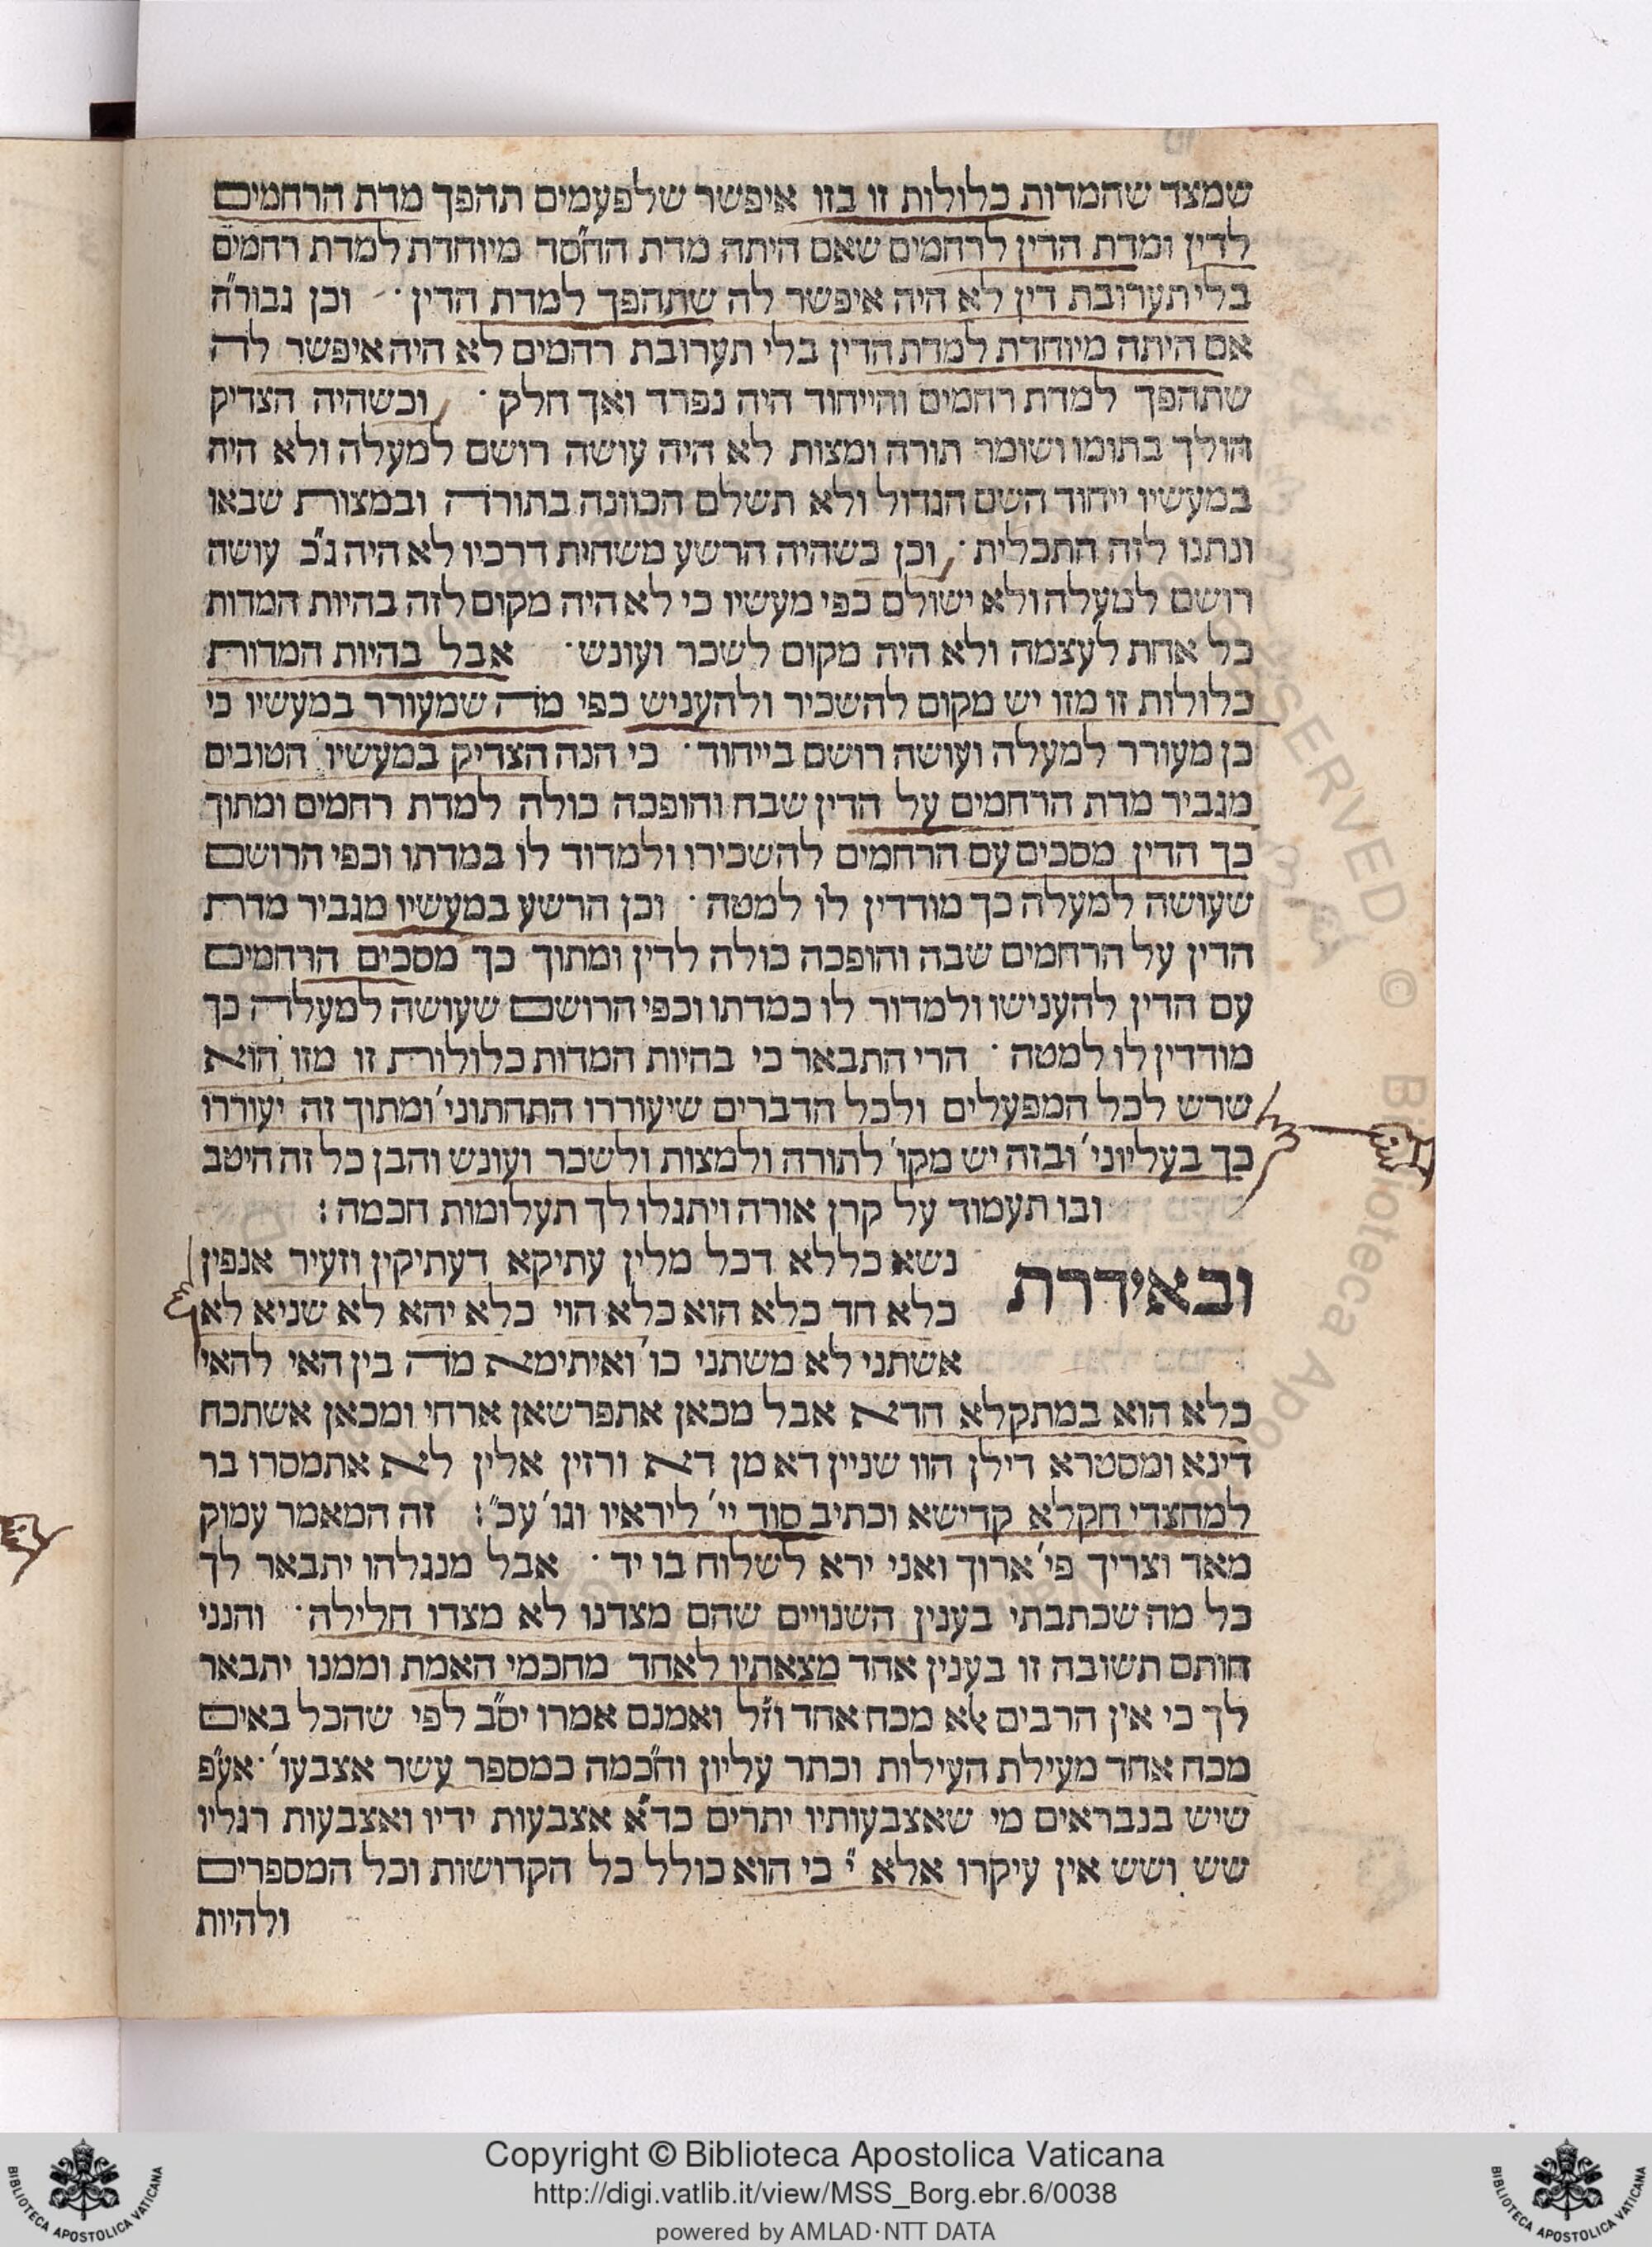 שמצד שהמדות כלולות זו בזו איפשר שלפעמים תהפך מדת הרחמים
לדין ומדת הדין לרחמים שאם היתה מדת החסד מיוחדת למדת רחמים
בלי תערובת דין לא היה איפשר לה שתהפך למדת הדין · וכן גבורה
אם היתה מיוחדת למדת הדין בלי תערובת רחמים לא היה איפשר לה
שתהפך למדת רחמים והייחוד היה נפרד ואך חלק · וכשהיה הצדיק
הולך בתומו ושומר תורה ומצות לא היה עושה רושם למעלה ולא היה
במעשיו ייחוד השם הגדול ולא תשלם הכוונה בתורה ובמצות שבאו
ונתנו לזה התכלית · וכן כשהיה הרשע משחית דרכיו לא היה ג״כ עושה
רושם למעלה ולא ישולם כפי מעשיו כי לא היה מקום לזה בהיות המדות
כל אחת לעצמה ולא היה מקום לשכר ועונש · אבל בהיות המדות
כלולות זו מזו יש מקום להשכיר ולהעניש כפי מה שמעורר במעשיו כי
כן מעורר למעלה ועושה רושם בייחוד · כי הנה הצדיק במעשיו הטובים
מגביר מדת הרחמים על הדין שבה והופכה כולה למדת רחמים ומתוך
כך הדין מסכים עם הרחמים להשכירו ולמדוד לו במדתו וכפי הרושם
שעושה למעלה כך מודדין לו למטה · וכן הרשע במעשיו מגביר מדת
הדין על הרחמים שבה והופכה כולה לדין ומתוך כך מסכים הרחמים
עם הדין להענישו ולמדוד לו כמדתו וכפי הרושם שעושה למעלה כך
מודדין לו למטה · הרי התבאר כי בהיות המדות כלולות זו מזו הוא
שרש לכל המפעלים ולכל הדברים שיעוררו התחתוני׳ ומתוך זה יעוררו
כך בעליוני׳ ובזה יש מקו׳ לתורה ולמצות ולשכר ועונש והבן כל זה היטב
ובו תעמוד על קרן אורה ויתגלו לך תעלומות חכמה :
ובאידרת נשא כללא דכל מלין עתיקא דעתיקין וזעיר אנפין
כלא חד כלא הוא כלא הוי כלא יהא לא שניא לא
אשתני לא משתני כו׳ ואיתימא מה בין האי להאי
כלא הוא במתקלא חדא אבל מכאן אתפרשאן ארחי ומכאן אשתכח
דינא ומסטרא דילן הוו שניין דא מן דא ורזין אלין לא אתמסרו בר
למחצדי חקלא קדישא וכתיב סוד יי׳ ליראיו וגו׳ עכ״ל : זה המאמר עמוק
מאד וצריך פי׳ ארוך ואני ירא לשלוח בו יד · אבל מנגלהו יתבאר לך
כל מה שכתבתי בענין השנויים שהם מצדנו לא מצדו חלילה · והנני
חותם תשובה זו בענין אחד מצאתיו לאחד מחכמי האמת וממנו יתבאר
לך כי אין הרבים אלא מכח אחד וז״ל ואמנם אמרו יס״ב לפי שהכל באים
מכח אחד מעילת העילות וכתר עליון וחכמה במספר עשר אצבעו׳ · אע״פ
שיש בנבראים מי שאצבעותיו יתרים כד״א אצבעות ידיו ואצבעות רגליו
שש ושש אין עיקרו אלא י׳ כי הוא כולל כל הקדושות וכל המספרים
ולהיות
Copyright © Biblioteca Apostolica Vaticana
http://digi.vatlib.it/view/MSS_Borg.ebr.6/0038
powered by AMLAD·NTT DATA